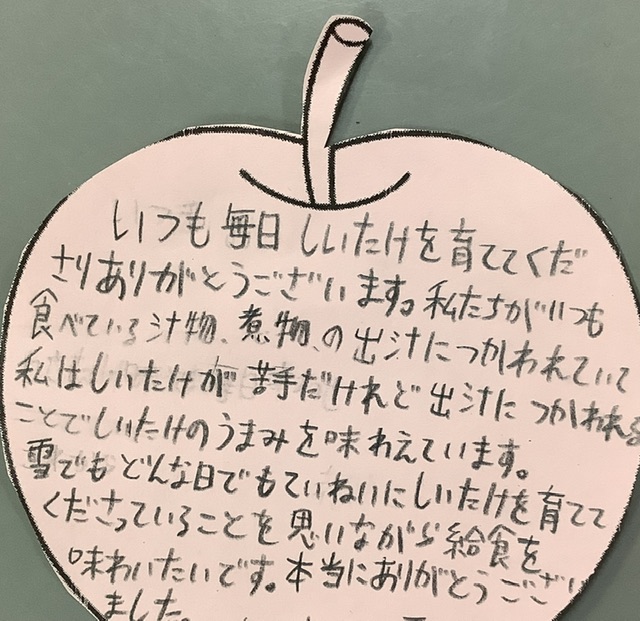 いつも毎日しいたけを育ててくだ
さりありがとうございます。私たちがいつも
食べている汁物、煮物、の出汁につかわれていて
私はしいたけが苦手だけれど出汁につかわれる
ことでしいたけのうまみを味わえています。
雪でもどんな日でもていねいにしいたけを育てて
くださっていることを思いながら給食を
味わいたいです。本当にありがとうござい
ました。